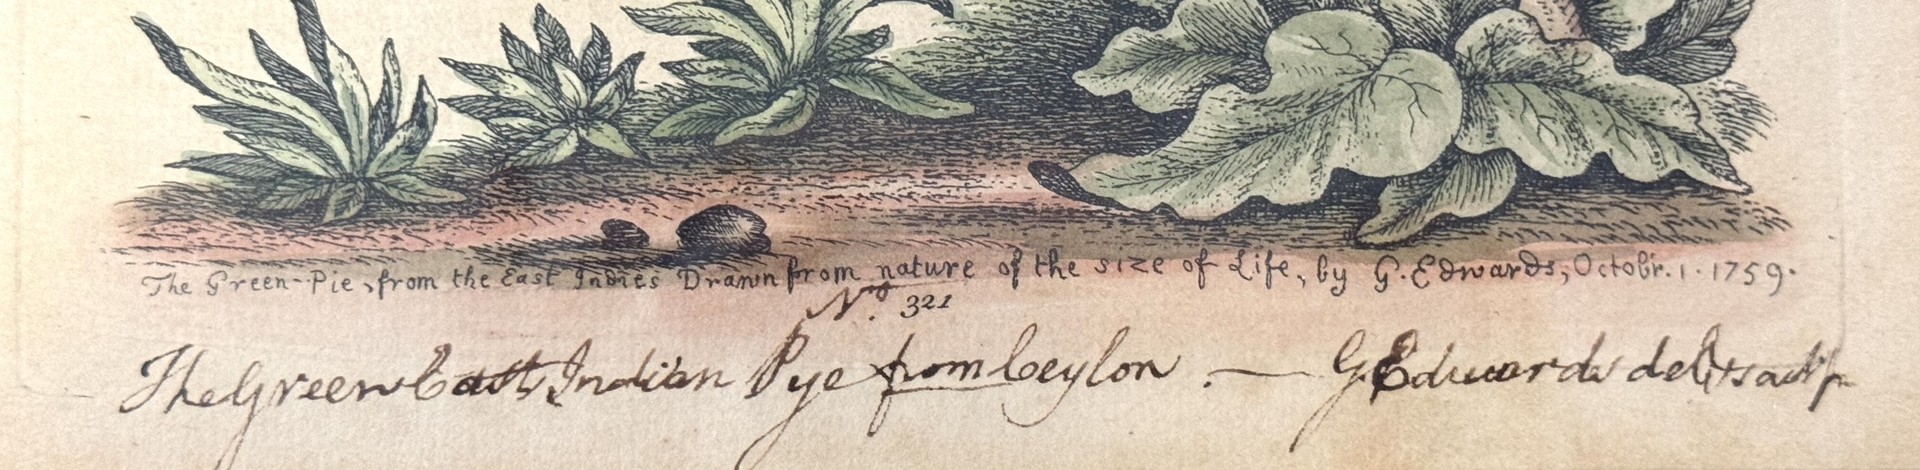 The Green-Pie, from the East Indies Drawn from nature of the size of Life, by G. Edwards, Octobr. 1. 1759.
No. 321
The Green East Indian Pye from Ceylon. — G Edwards del et sculp